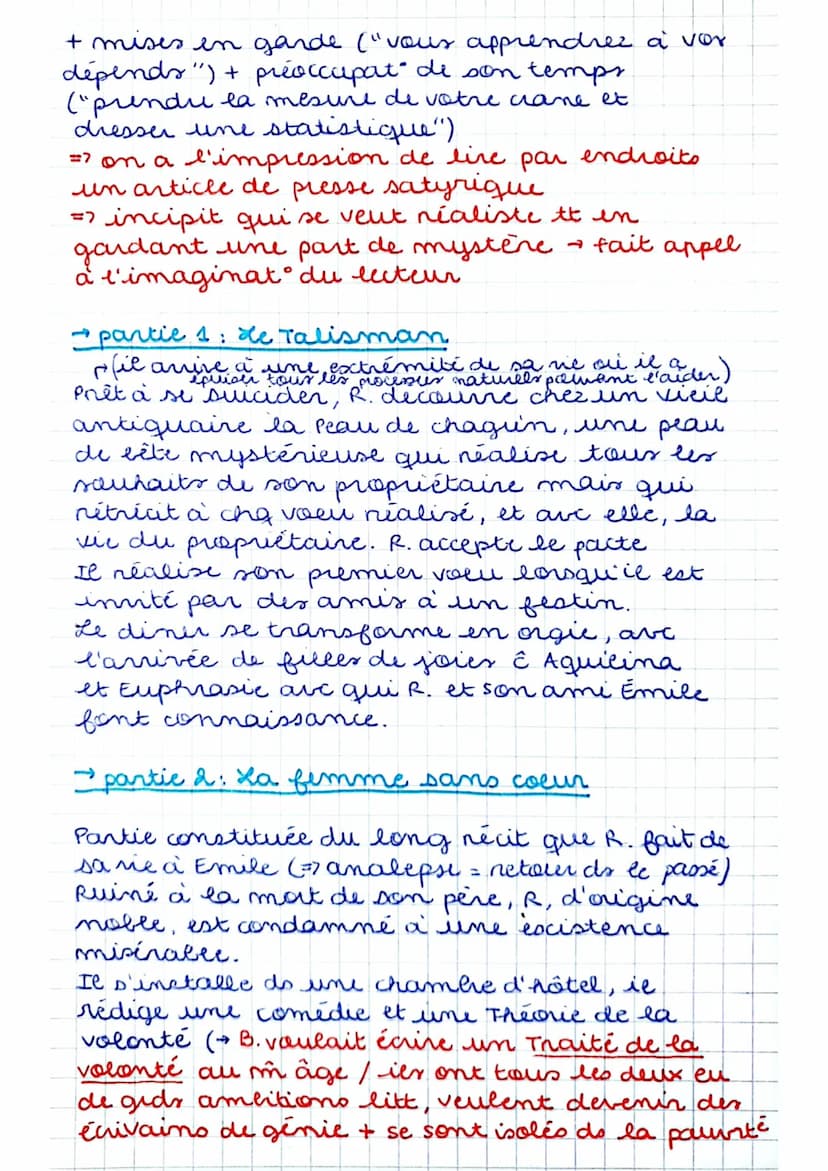 + mises en garde ("vous apprendrez à vos
dépends") + préoccupat° de son temps
("prendre la mesure de votre crane et
dresser une statistique")
=> on a l'impression de lire par endroits
un article de presse satyrique
=> incipit qui se veut réaliste tt en
gardant une part de mystère → fait appel
à l'imaginat° du lecteur
→ partie 1 : Le Talisman
(il arrive à une extrémité de sa vie où il a
épuiser tous les processus naturels pouvant l'aider)
Prêt à se suicider, R. découvre chez un vieil
antiquaire la Peau de chagrin, une peau
de bête mystérieuse qui réalise tous les
souhaits de son propriétaire mais qui
rétricit à chq voeu réalisé, et avc elle, la
vie du propriétaire. R. accepte le pacte
Il réalise son premier voeu lorsqu'il est
invité par des amis à un festin.
Le diner se transforme en orgie, avc
l'arrivée de filles de joies ĉ Aquilina
et Euphrasie avc qui R. et son ami Émile
font connaissance.
→ partie 2 : La femme sans coeur
Partie constituée du long récit que R. fait de
sa vie à Emile (=> analepse = retour ds le passé)
Ruiné à la mort de son père, R, d'origine
noble, est condamné à une existence
misérable.
Il s'installe ds une chambre d'hôtel, il
rédige une comédie et une Théorie de la
volonté (→ B. voulait écrire un Traité de la
volonté au m̂ âge / ils ont tous les deux eu
de grds ambitions litt, veulent devenir des
écrivains de génie + se sont isolés ds la pauvrté